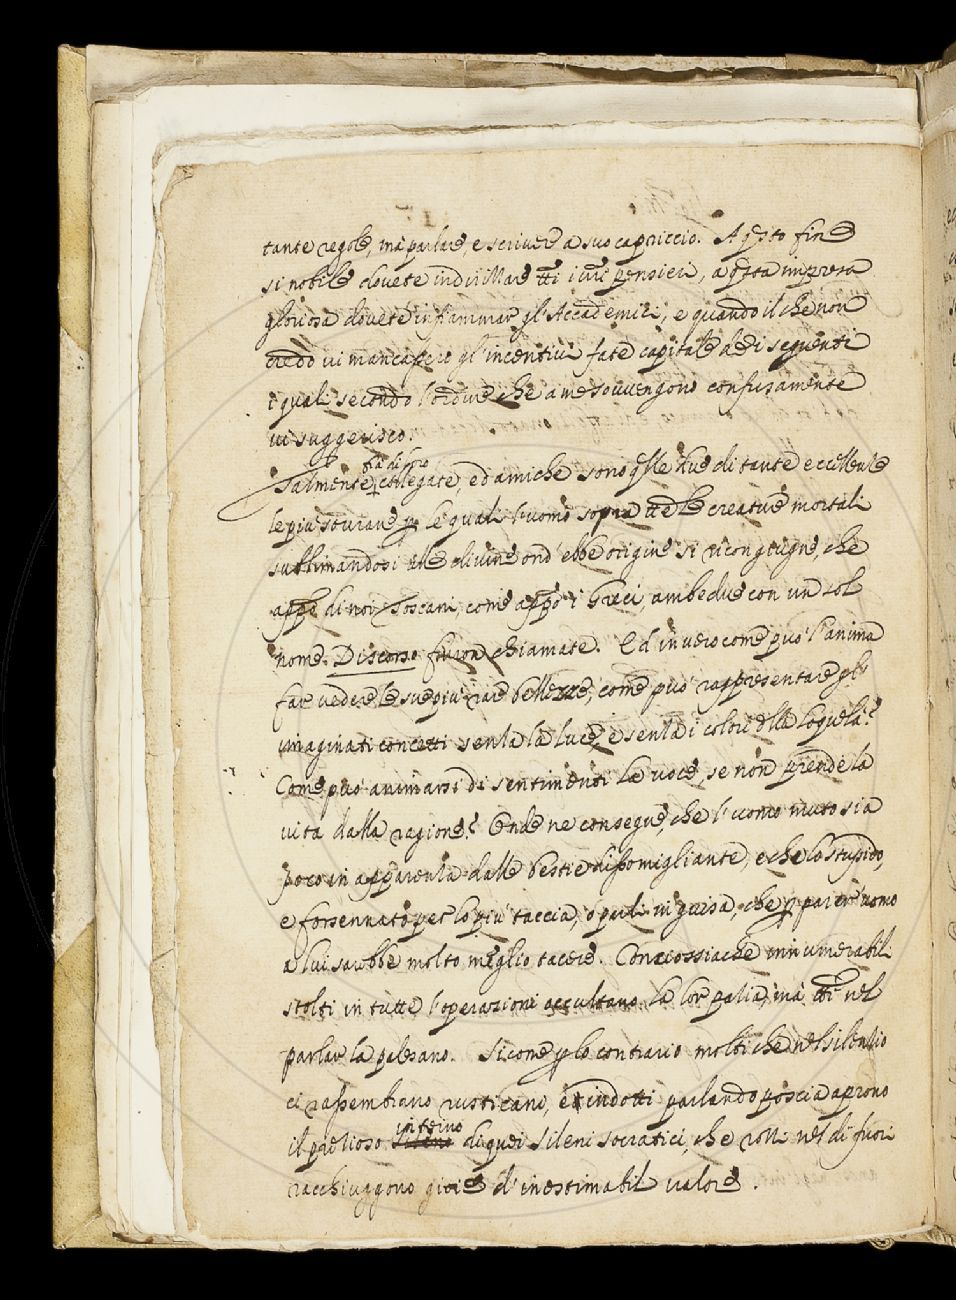 tante regole, mà parlare, e scriuere a suo capriccio. A q̃sto fine
si nobile douete indrizzare tt̃i i ũri pensieri, a q̃sta impresa
gloriosa douete infiammar gl'Accademici, e quando il che non
credo ui mancassero gl'incentiui fate capitale de i seguenti
i quali secondo l'ordine che a me souuengono confusamente
ui suggerisco.
Talmente frà di loro collegate, ed amiche sono q̃lle due di tante eccellenze
le più sourane p le quali l'uomo sopra tt̃e le creature mortali
sullimandosi alle diuine ond'ebbe origine si ricongiugne, che
appo di noi Toscani, come appo i Greci, ambedue con un sol
nome Discorso furon chiamate. Ed in uero come può l'anima
far uedere le sue più rare bellezze, come può rappresentare gl'
imaginati concetti senza la luce, e senza i colori dlla loquela?
Come può animarsi di sentimenti la uoce, se non prende la
uita dalla ragione? Onde ne consegue, che l'uomo muto sia
poco in apparenza dalle bestie dissomigliante, e che lo stupido,
e forsennato per lo più taccia, o parli in guisa, che p parer uomo
a lui sarebbe molto meglio tacere. Conciossiache innumerabili
stolti in tutte l'operazioni occultano la lor pazia, mà tt̃i nel
parlar la palesano. Sicome p lo contrario molti che nel silenzio
ci rassembrano rusticano, e indotti parlando poscia aprono
il prezioso interno di quei Sileni socratici, che rozzi nel di fuori
racchiuggono gioie d'inestimabil ualore.